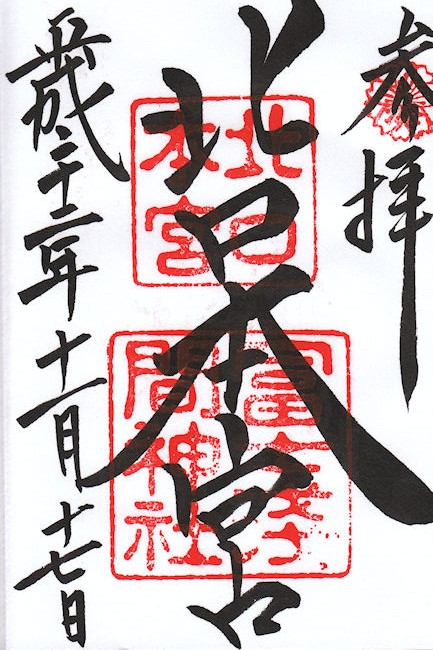 参拝
北口本宮
北口
本宮
冨士浅
間神社
平成二十二年十一月十七日